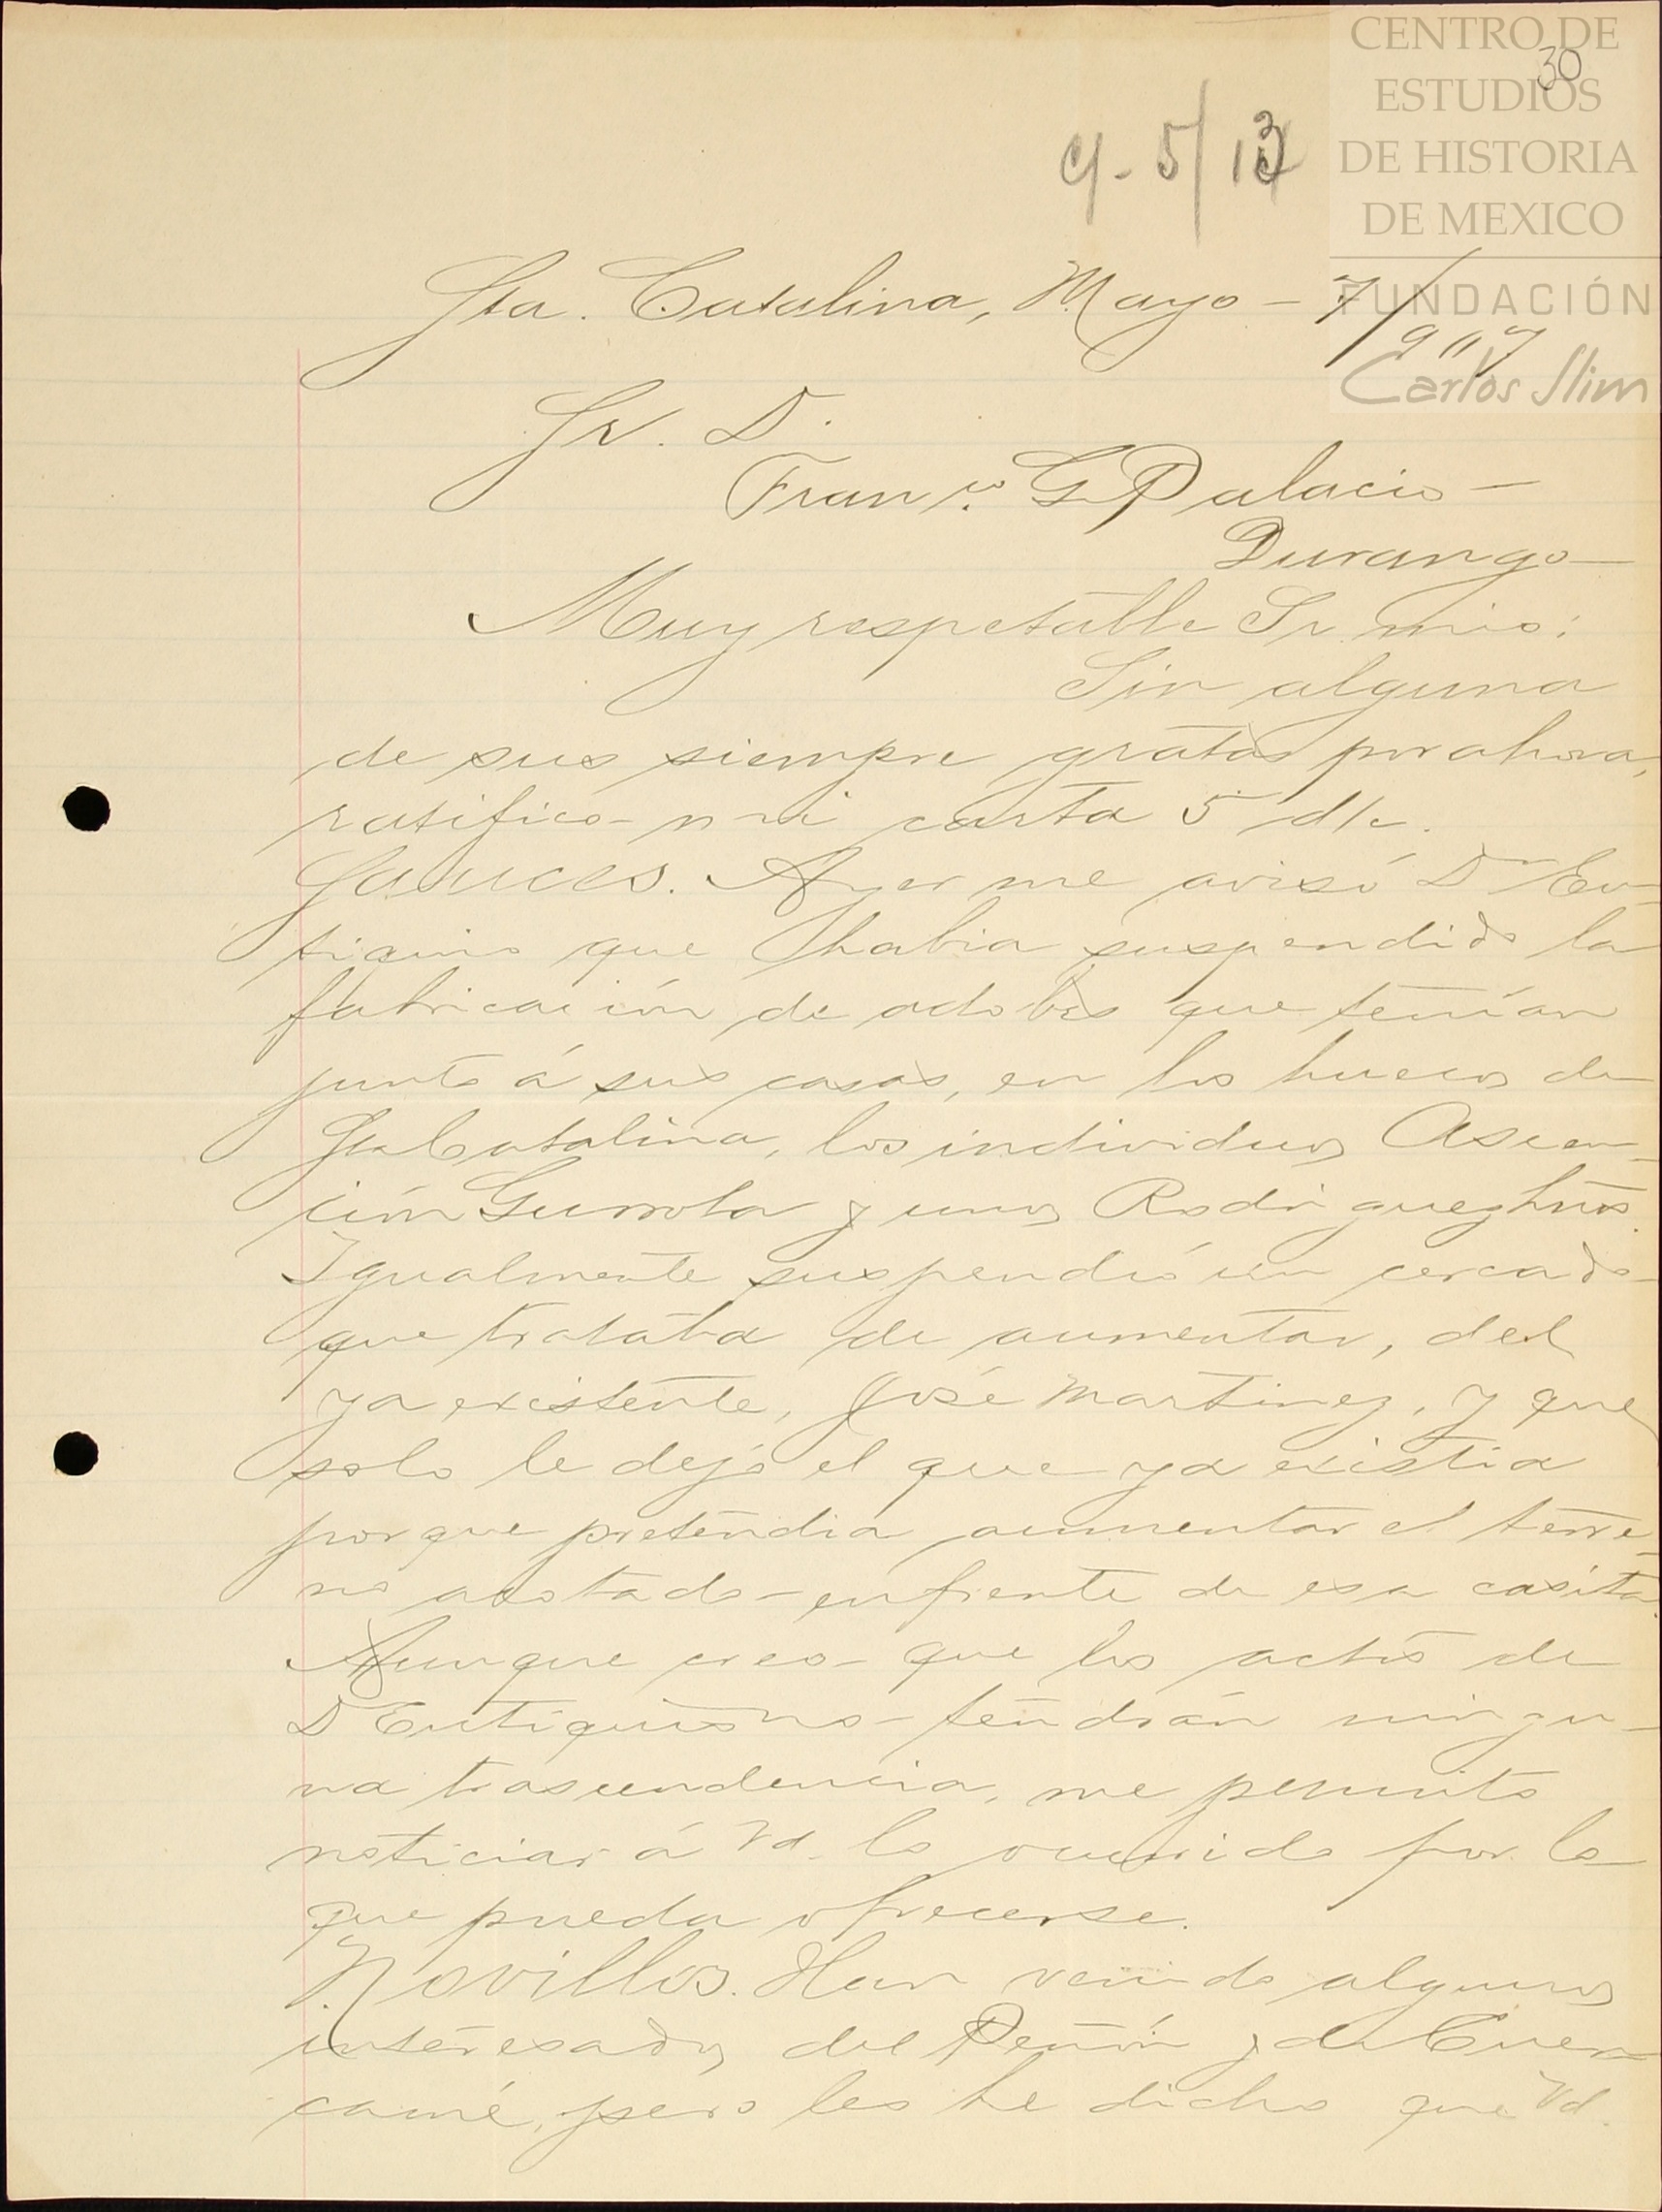 CENTRO DE
ESTUDIOS
DE HISTORIA
DE MEXICO
FUNDACIÓN
Carlos Slim
30
5/13
Sta. Catalina, Mayo - 7/
Sr. D.
Franco. G Palacio -
Durango -
Muy respetable Sr. mio:
Sin alguna
de sus siempre gratas por ahora,
ratifico mi carta 5 d/c.
Sauces. Ayer me avisó Dn Eu-
tiquio que habia suspendido la
fabricación de adobes que tenían
junto á sus casas, en los huecos de
Sta Catalina, los individuos Ascen-
ción Gurrola y unos Rodriguez hnos.
Igualmente suspendió un cercado
que trataba de aumentar, del
ya existente, José Martinez, y que
solo le dejó el que ya existia
porque pretendia aumentar el terre-
no acotado enfrente de esa casita.
Aunque creo que los actos de
D Eutiquio no tendrán ningu-
na trascendencia, me permito
noticiar á Vd. lo ocurrido por lo
que pueda ofrecerse.
Novillos. Han venido algunos
interesados del Peñón y de Cuen-
camé, pero les he dicho que Vd.